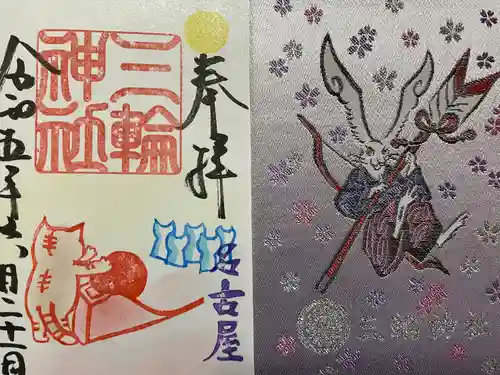 奉拝
名古屋
三輪
神社
令和五年六月二十一日
三輪神社